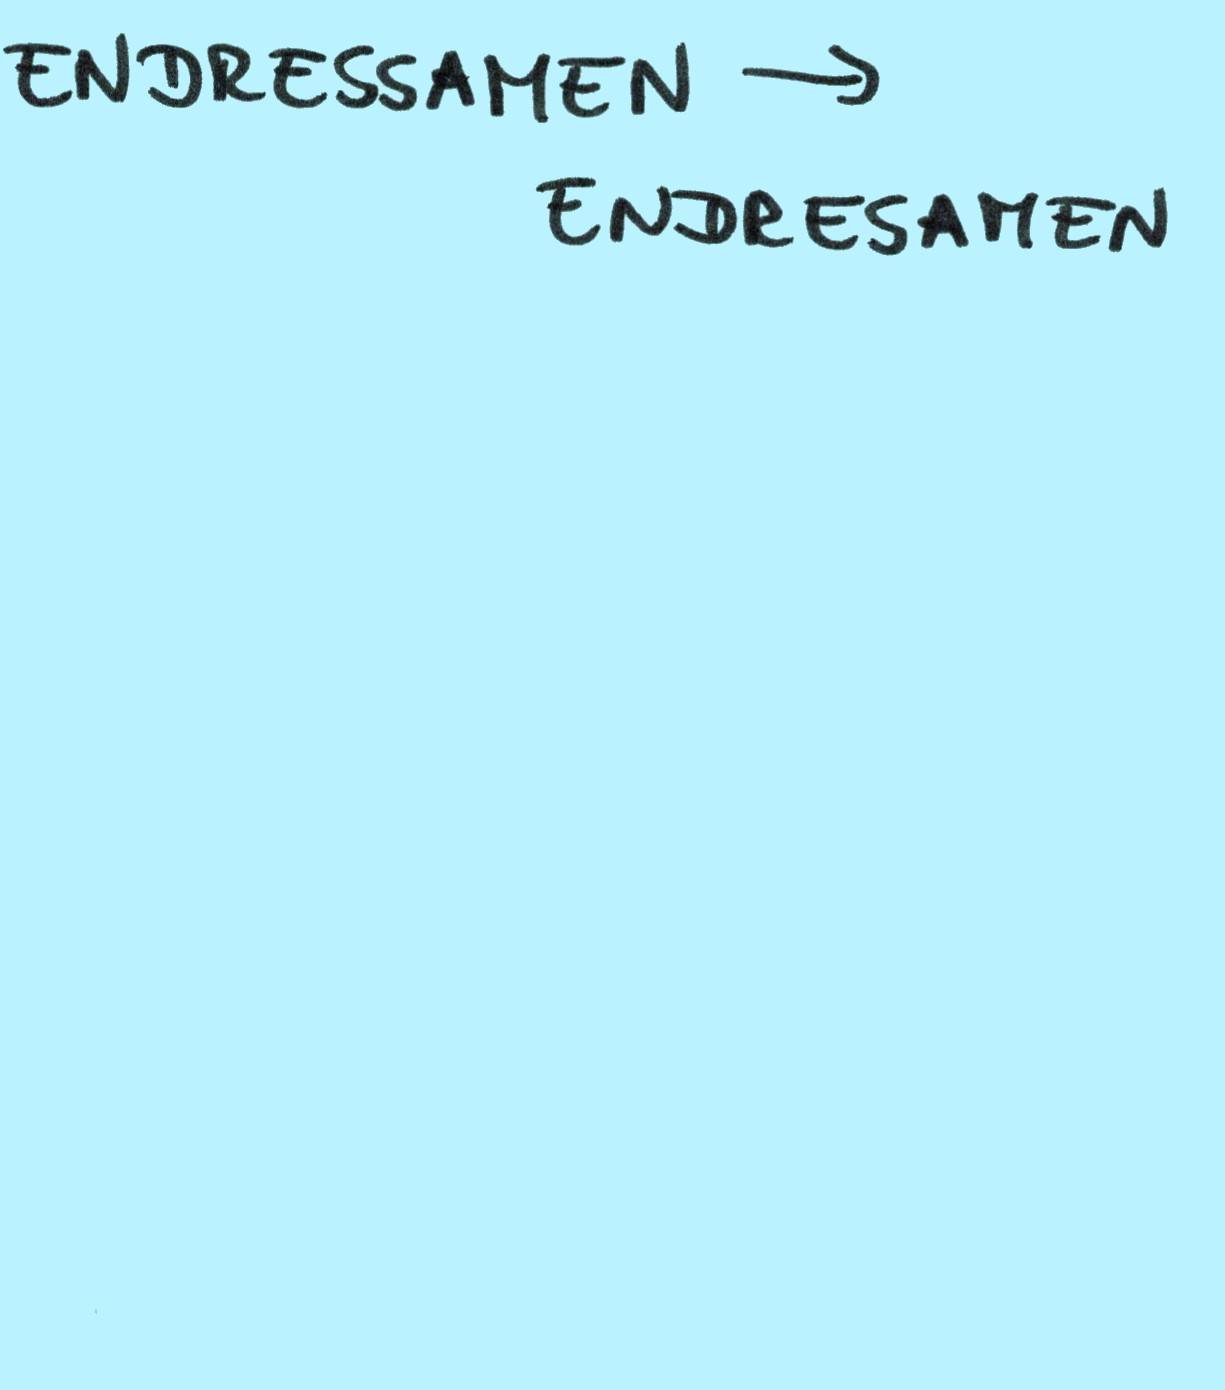 ENDRESSAMEN →
ENDRESAMEN